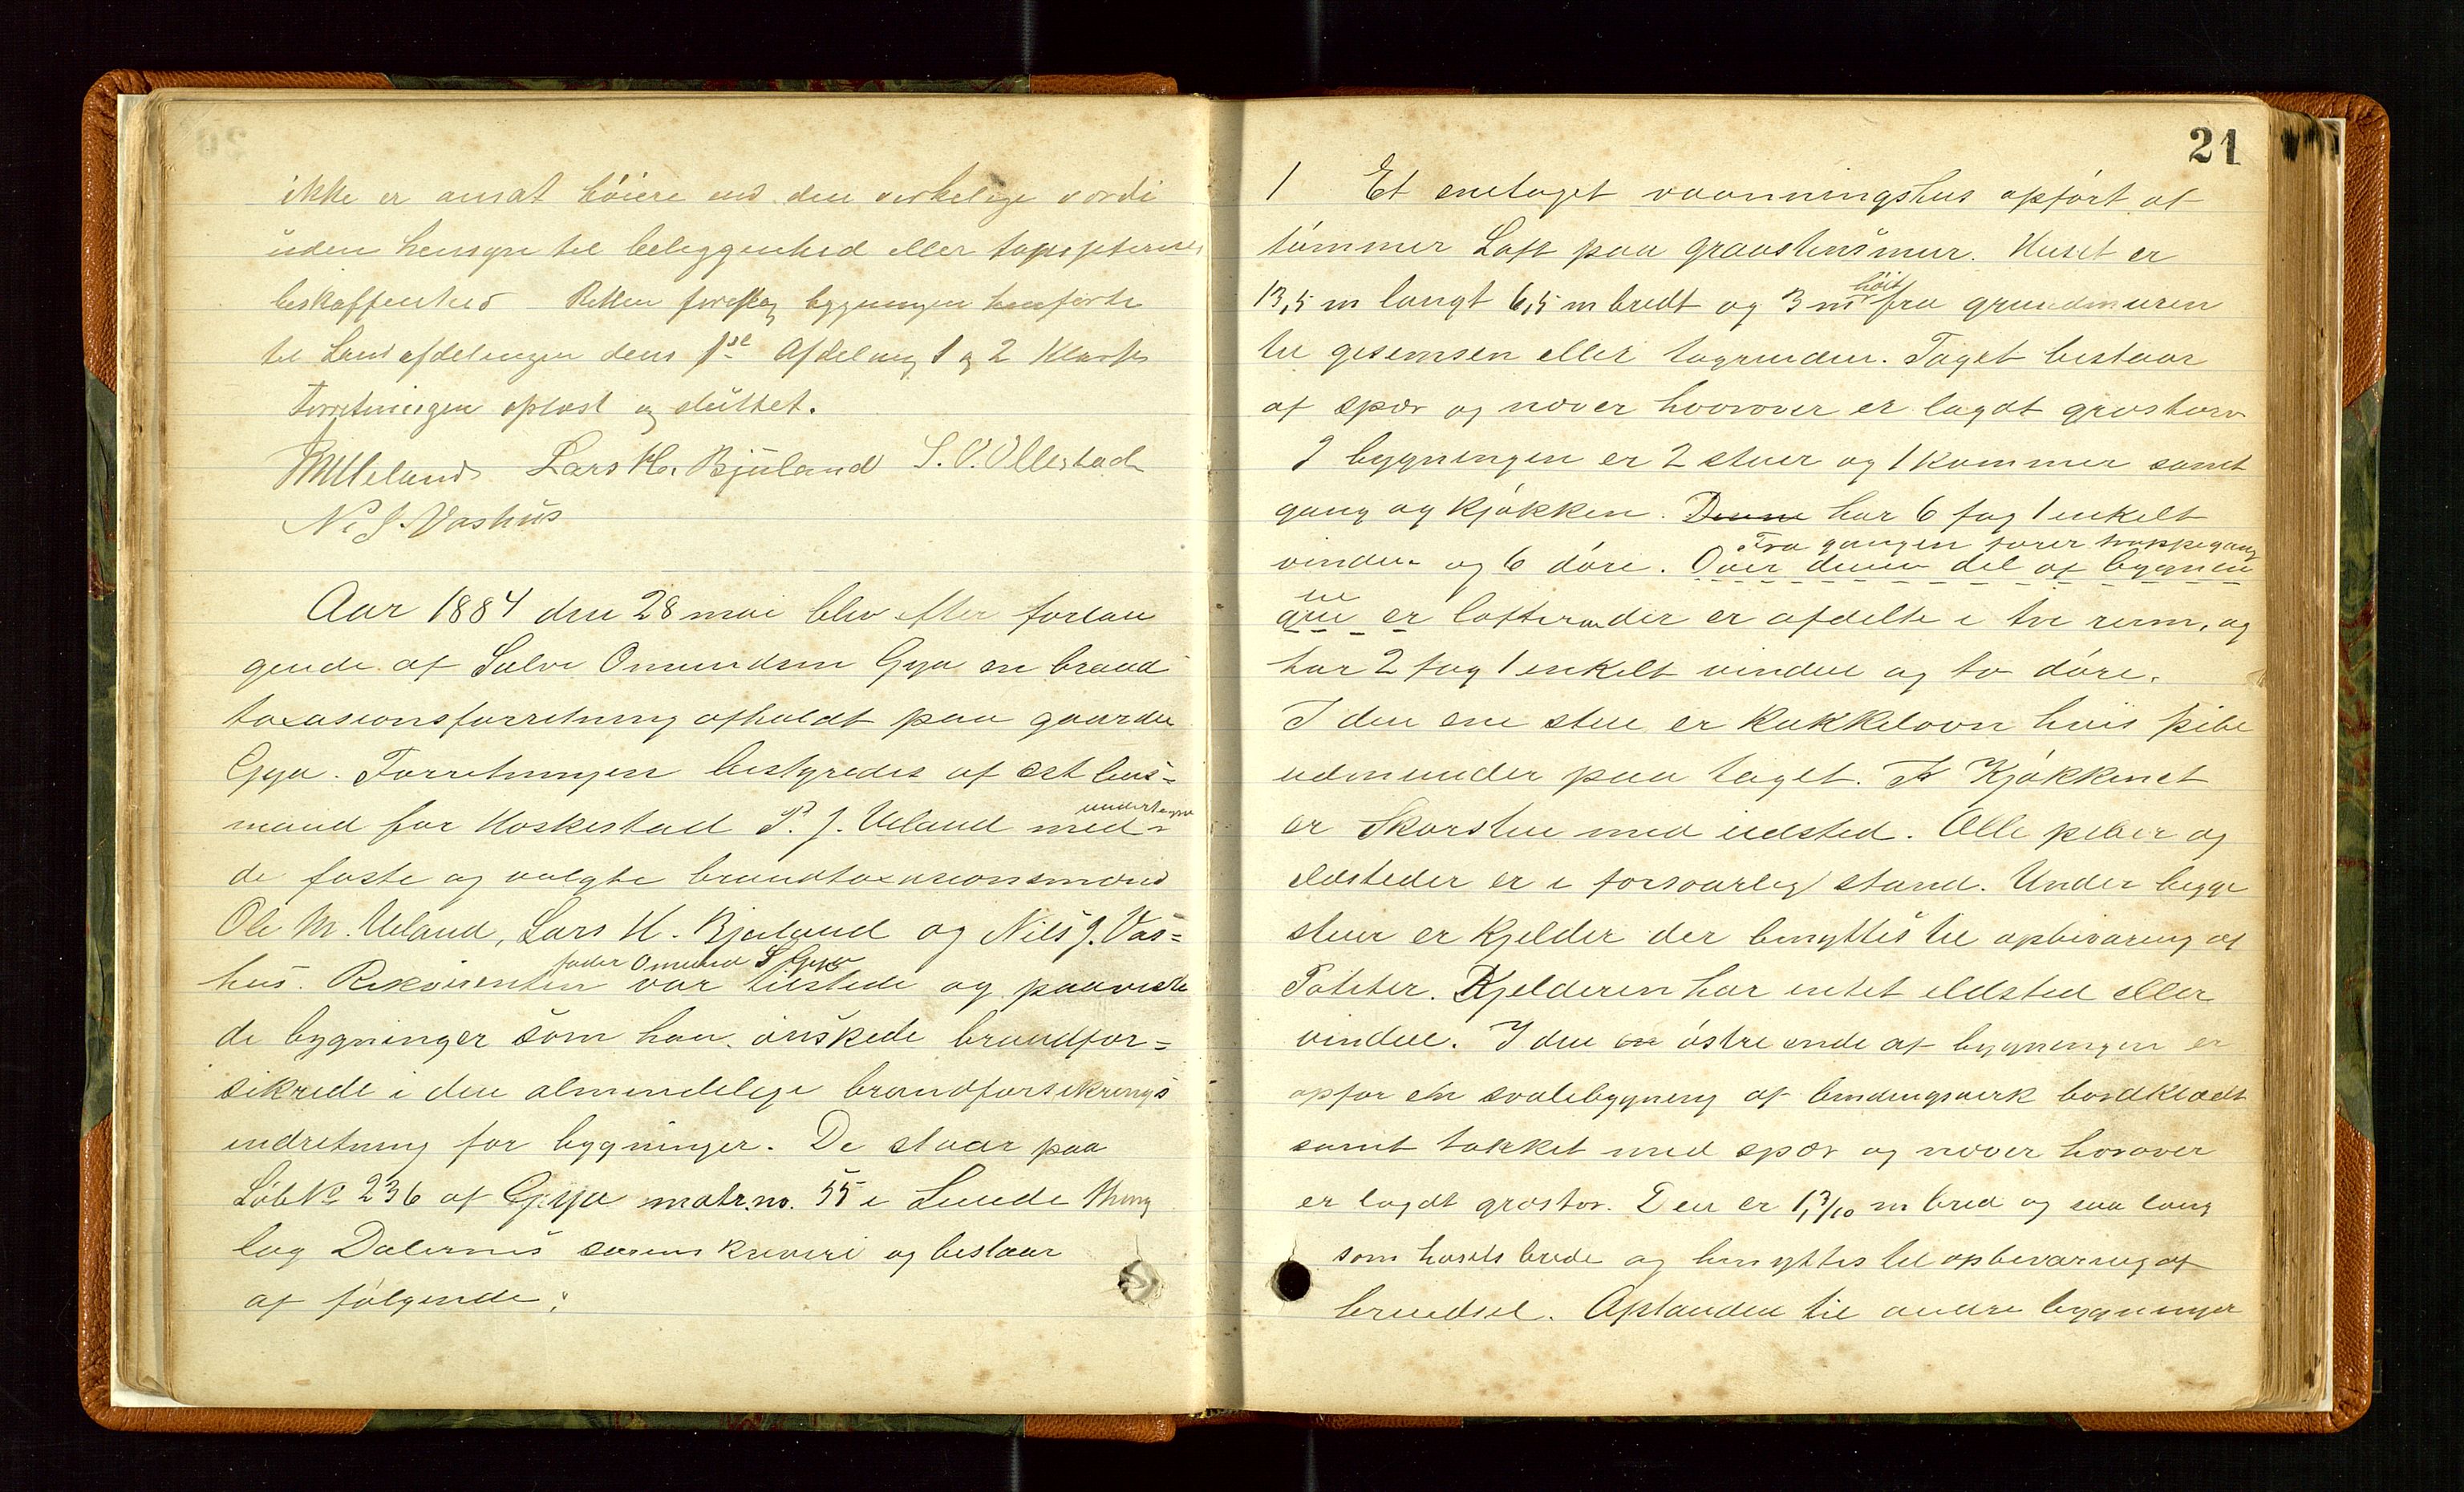 ikke er ansat höiere end den verkelige værdi
uden hensyn til beliggenhed eller
beskaffenhed Retten bygningen henförte
til Landafdelingen dens 1ste Afdeling 1 og 2 Klasse
Forretningen oplæst og sluttet.
Lars H. Bjuland S. O. Ollestad
N. J. Vashus
Aar 1884 den 28 mai blev efter forlan
gende af Salve Omundsen Gya en brand
taxasionsforretning afholdt paa gaarden
Gya. Forretningen bestyredes af lens-
mand for Heskestad P. J. Ueland med undertegne
de faste og valgte brandtaxasionsmænd
Ole M. Ueland, Lars H. Bjuland og Nils J. Vas=
fader Omund S Gya
hus. Rekvirenten var tilstede og paaviste
de bygninger som han önskede brandfor=
sikrede i den almindelige brandforsikrings
indretning for bygninger. De staar paa
Löbe No 236 af Gya matr.no. 55 i Lunde thing
lag Dalernes sorenskriveri og bestaar
af fölgende:
21
1 Et enetaget vaanningshus opfört af
tömmer Laft paa graastensmur. Huset er
13,5 m langt 6,5 m bredt og 3 m höit fra grundmuren
til gesemsen eller tagrenden. Taget bestaar
af spær og næver hvorover er lagdt græstorv
I bygningen er 2 stuer og 1 kammer samt
gang og kjökken. Denne har 6 fag 1 enkelt
Fra gangen förer trappegang
vindue og 6 döre. Over denne del af bygnin
gen er lofter der er afdelte i tre rum, og
har 2 fag 1 enkelt vindue og to döre.
I den ene stue er kakkelovn hvis pibe
udmunder paa taget. I Kjökkenet
er Skorsten med ildsted. Alle piber og
ildsteder er i forsvarlig stand. Under begge
stuer er Kjelder der benyttes til opbevaring af
Poteter. Kjelderen har intet ildsted eller
vindue. I den östre ende af bygningen er
opför en svalebygning af bindingsverk bordklædt
samt tækket med spær og næver hvorover
er lagdt græstorv. Den er 1,3/10 m bred og saa lang
som husets brede og benyttes til opbevaring af
brendsel. Afstanden til andre bygninger